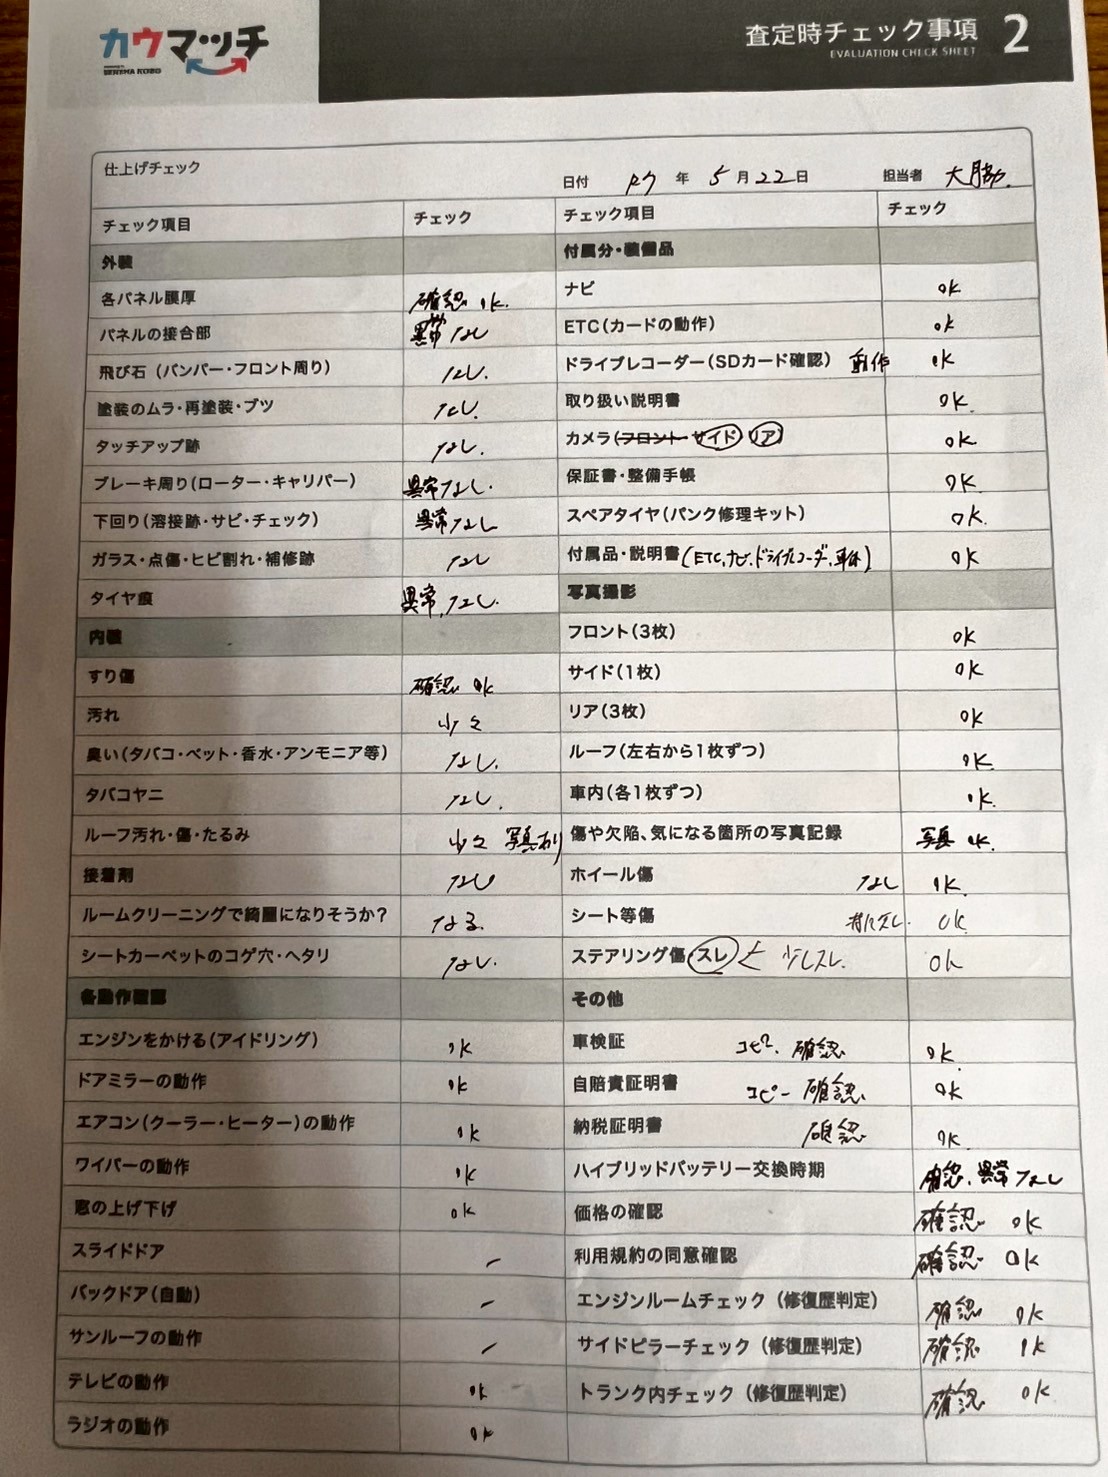 カウマッチ
査定時チェック事項 2
EVALUATION CHECK SHEET
仕上げチェック
日付 R7 年 5 月 22 日 担当者 大脇
チェック項目 チェック チェック項目 チェック
外装 付属分・装備品
各パネル膜厚 確認 ok. ナビ ok
パネルの接合部 異常なし ETC(カードの動作) ok
飛び石 (バンパー・フロント周り) なし. ドライブレコーダー(SDカード確認) 動作 ok
塗装のムラ・再塗装・ブツ なし. 取り扱い説明書 ok.
タッチアップ跡 なし. カメラ(フロント サイド リア) ok
ブレーキ周り(ローター・キャリパー) 異常なし. 保証書・整備手帳 ok.
下回り(溶接跡・サビ・チェック) 異常なし スペアタイヤ(パンク修理キット) ok.
ガラス・点傷・ヒビ割れ・補修跡 なし 付属品・説明書(ETC,ナビ,ドライブレコーダ,車体) ok
タイヤ痕 異常なし. 写真撮影
内装 フロント(3枚) ok
すり傷 確認 ok サイド(1枚) ok
汚れ 少々 リア(3枚) ok
臭い(タバコ・ペット・香水・アンモニア等) なし. ルーフ(左右から1枚ずつ) ok.
タバコヤニ なし. 車内(各1枚ずつ) ok.
ルーフ汚れ・傷・たるみ 少々 写真あり 傷や欠陥、気になる箇所の写真記録 写真 ok.
接着剤 なし ホイール傷 なし ok.
ルームクリーニングで綺麗になりそうか? なる. シート等傷 特になし. ok
シートカーペットのコゲ穴・ヘタリ なし. ステアリング傷(スレ) 少しスレ. ok
各動作確認 その他
エンジンをかける(アイドリング) ok 車検証 コピー. 確認 ok.
ドアミラーの動作 ok 自賠責証明書 コピー 確認. ok
エアコン(クーラー・ヒーター)の動作 ok 納税証明書 確認 ok.
ワイパーの動作 ok ハイブリッドバッテリー交換時期 確認. 異常なし
窓の上げ下げ ok 価格の確認 確認 ok
スライドドア ー 利用規約の同意確認 確認 ok
バックドア(自動) ー エンジンルームチェック (修復歴判定) 確認 ok
サンルーフの動作 ー サイドピラーチェック (修復歴判定) 確認 ok
テレビの動作 ok トランク内チェック (修復歴判定) 確認 ok
ラジオの動作 ok